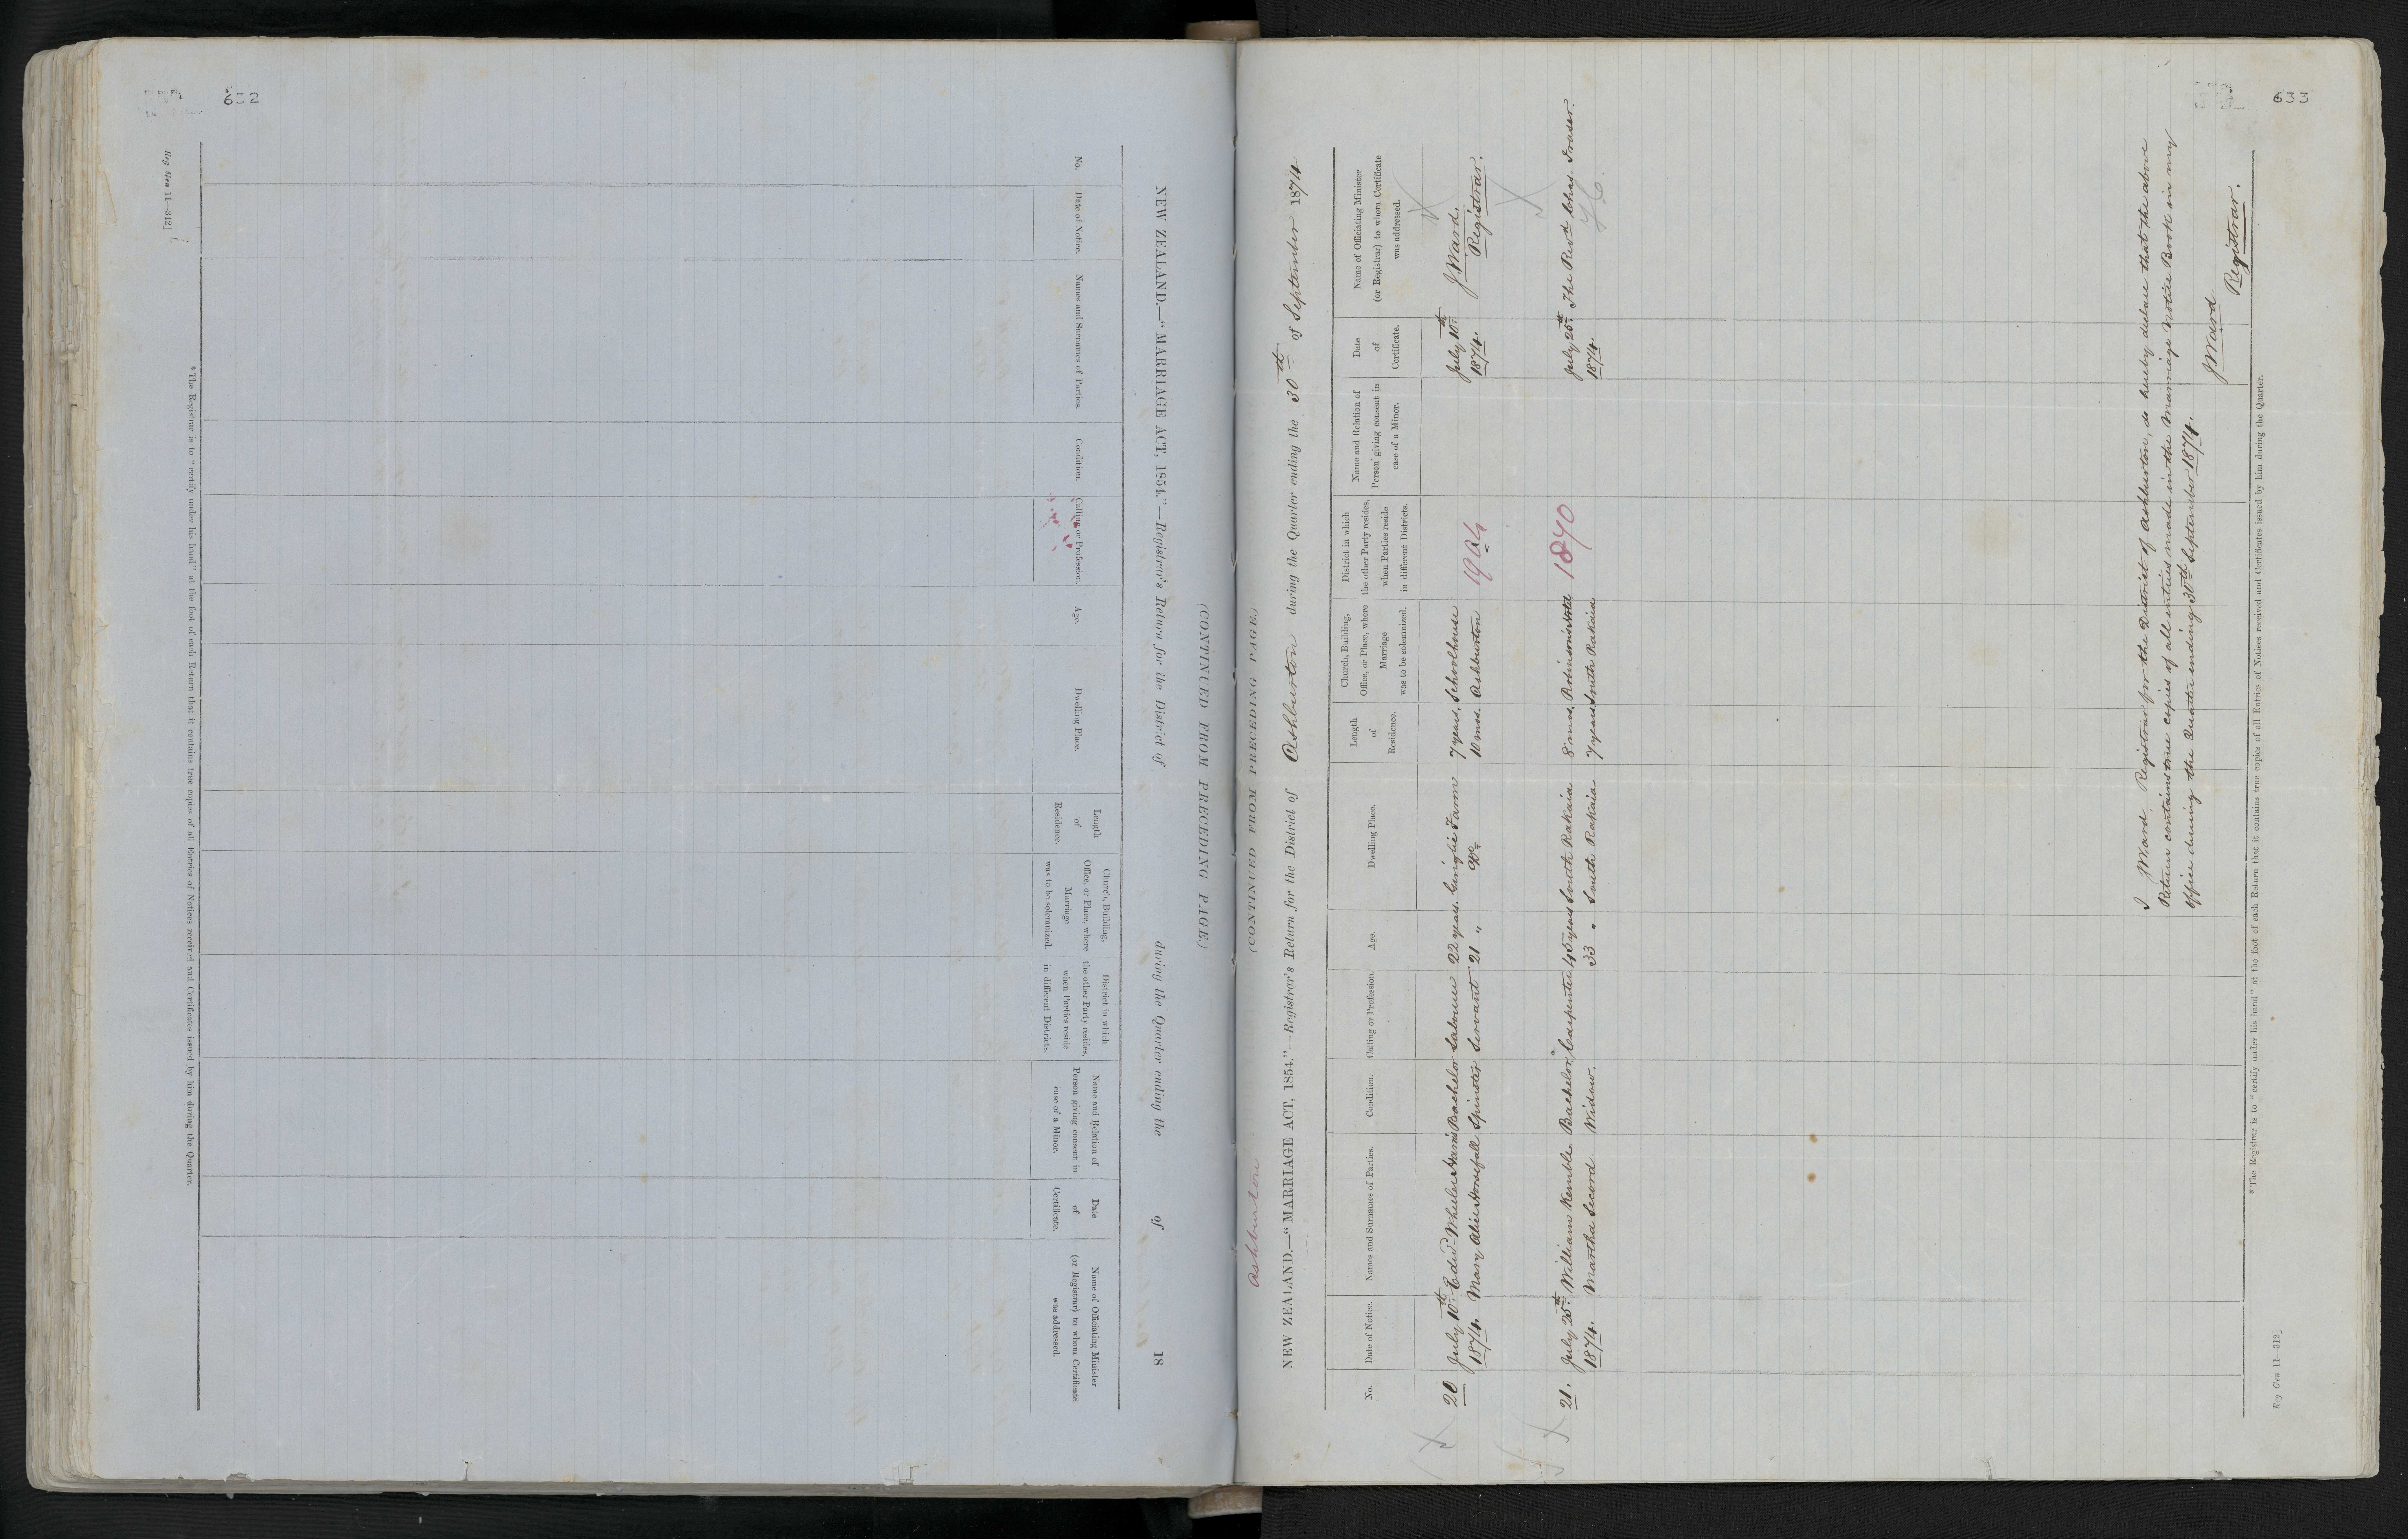 632
Reg Gen 11—312]
(CONTINUED FROM PRECEDING PAGE.)
NEW ZEALAND.—"MARRIAGE ACT, 1854."—Registrar's Return for the District of during the Quarter ending the of 18
No.
Date of Notice.
Names and Surnames of Parties.
Condition.
Calling or Profession.
Age.
Dwelling Place.
Length
of
Residence.
Church, Building,
Office, or Place, where
Marriage
was to be solemnized.
District in which
the other Party resides,
when Parties reside
in different Districts.
Name and Relation of
Person giving consent in
case of a Minor.
Date
of
Certificate.
Name of Officiating Minister
(or Registrar) to whom Certificate
was addressed.
*The Registrar is to "certify under his hand" at the foot of each Return that it contains true copies of all Entries of Notices received and Certificates issued by him during the Quarter.
633
Ashburton
(CONTINUED FROM PRECEDING PAGE.)
NEW ZEALAND.—"MARRIAGE ACT, 1854."—Registrar's Return for the District of Ashburton during the Quarter ending the 30th of September 1874
No.
Date of Notice.
Names and Surnames of Parties.
Condition.
Calling or Profession.
Age.
Dwelling Place.
Length
of
Residence.
Church, Building,
Office, or Place, where
Marriage
was to be solemnized.
District in which
the other Party resides,
when Parties reside
in different Districts.
Name and Relation of
Person giving consent in
case of a Minor.
Date
of
Certificate.
Name of Officiating Minister
(or Registrar) to whom Certificate
was addressed.
20 July 10th Edwd Wheeler Harris Bachelor Labourer 22 years Farm 7 years, Schoolhouse 1904 July 10th J Ward.
1874. Mary Alice Horsfall Spinster Servant 21 " Do 10 mos. Ashburton 1874. Registrar.
21. July 25th William Kemble Bachelor Carpenter 45 years South Rakaia 8 mos. Robinson's Hotel 1870 July 25th The Revd Chas. Fraser.
1874. Martha Secord Widow. 33 " South Rakaia 7 years South Rakaia 1874.
I J Ward Registrar for the District of Ashburton, do hereby declare that the above
Return contains true copies of all entries made in the Marriage Notice Book in my
office during the Quarter ending 30th September 1874.
J Ward
Registrar.
*The Registrar is to "certify under his hand" at the foot of each Return that it contains true copies of all Entries of Notices received and Certificates issued by him during the Quarter.
Reg Gen 11—312]